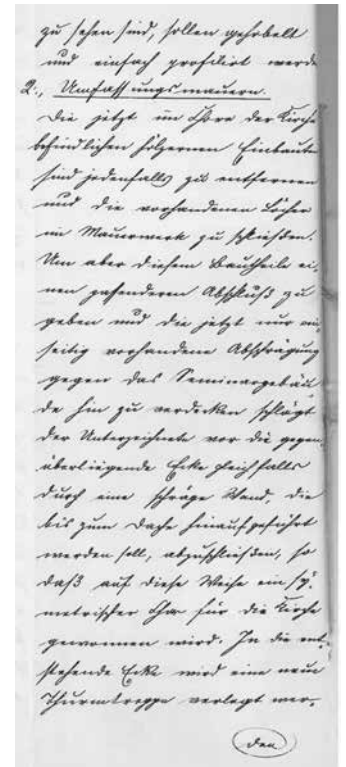 zu sehen sind, sollen gehobelt
und einfach profilirt werde
2., Umfassungsmauern.
Die jetzt im Chore der Kirche
befindlichen hölzernen Einbaute
sind jedenfalls zu entfernen
und die vorhandenen Löcher
im Mauerwerk zu schließen.
Um aber diesem Bautheile ei,
nen passenderen Abschluß zu
geben und die jetzt nur ein
seitig vorhandene Abschrägung
gegen das Seminargebäu,
de hin zu verdecken schlägt
der Unterzeichnete vor die gegen,
überliegende Ecke gleichfalls
durch eine schräge Wand, die
bis zum Dache hinaufgeführt
werden soll, abzuschließen, so
daß auf diese Weise ein sy,
metrischer Chor für die Kirche
gewonnen wird. In die ent,
stehende Ecke wird eine neue
Thurmtreppe verlegt wer,
den